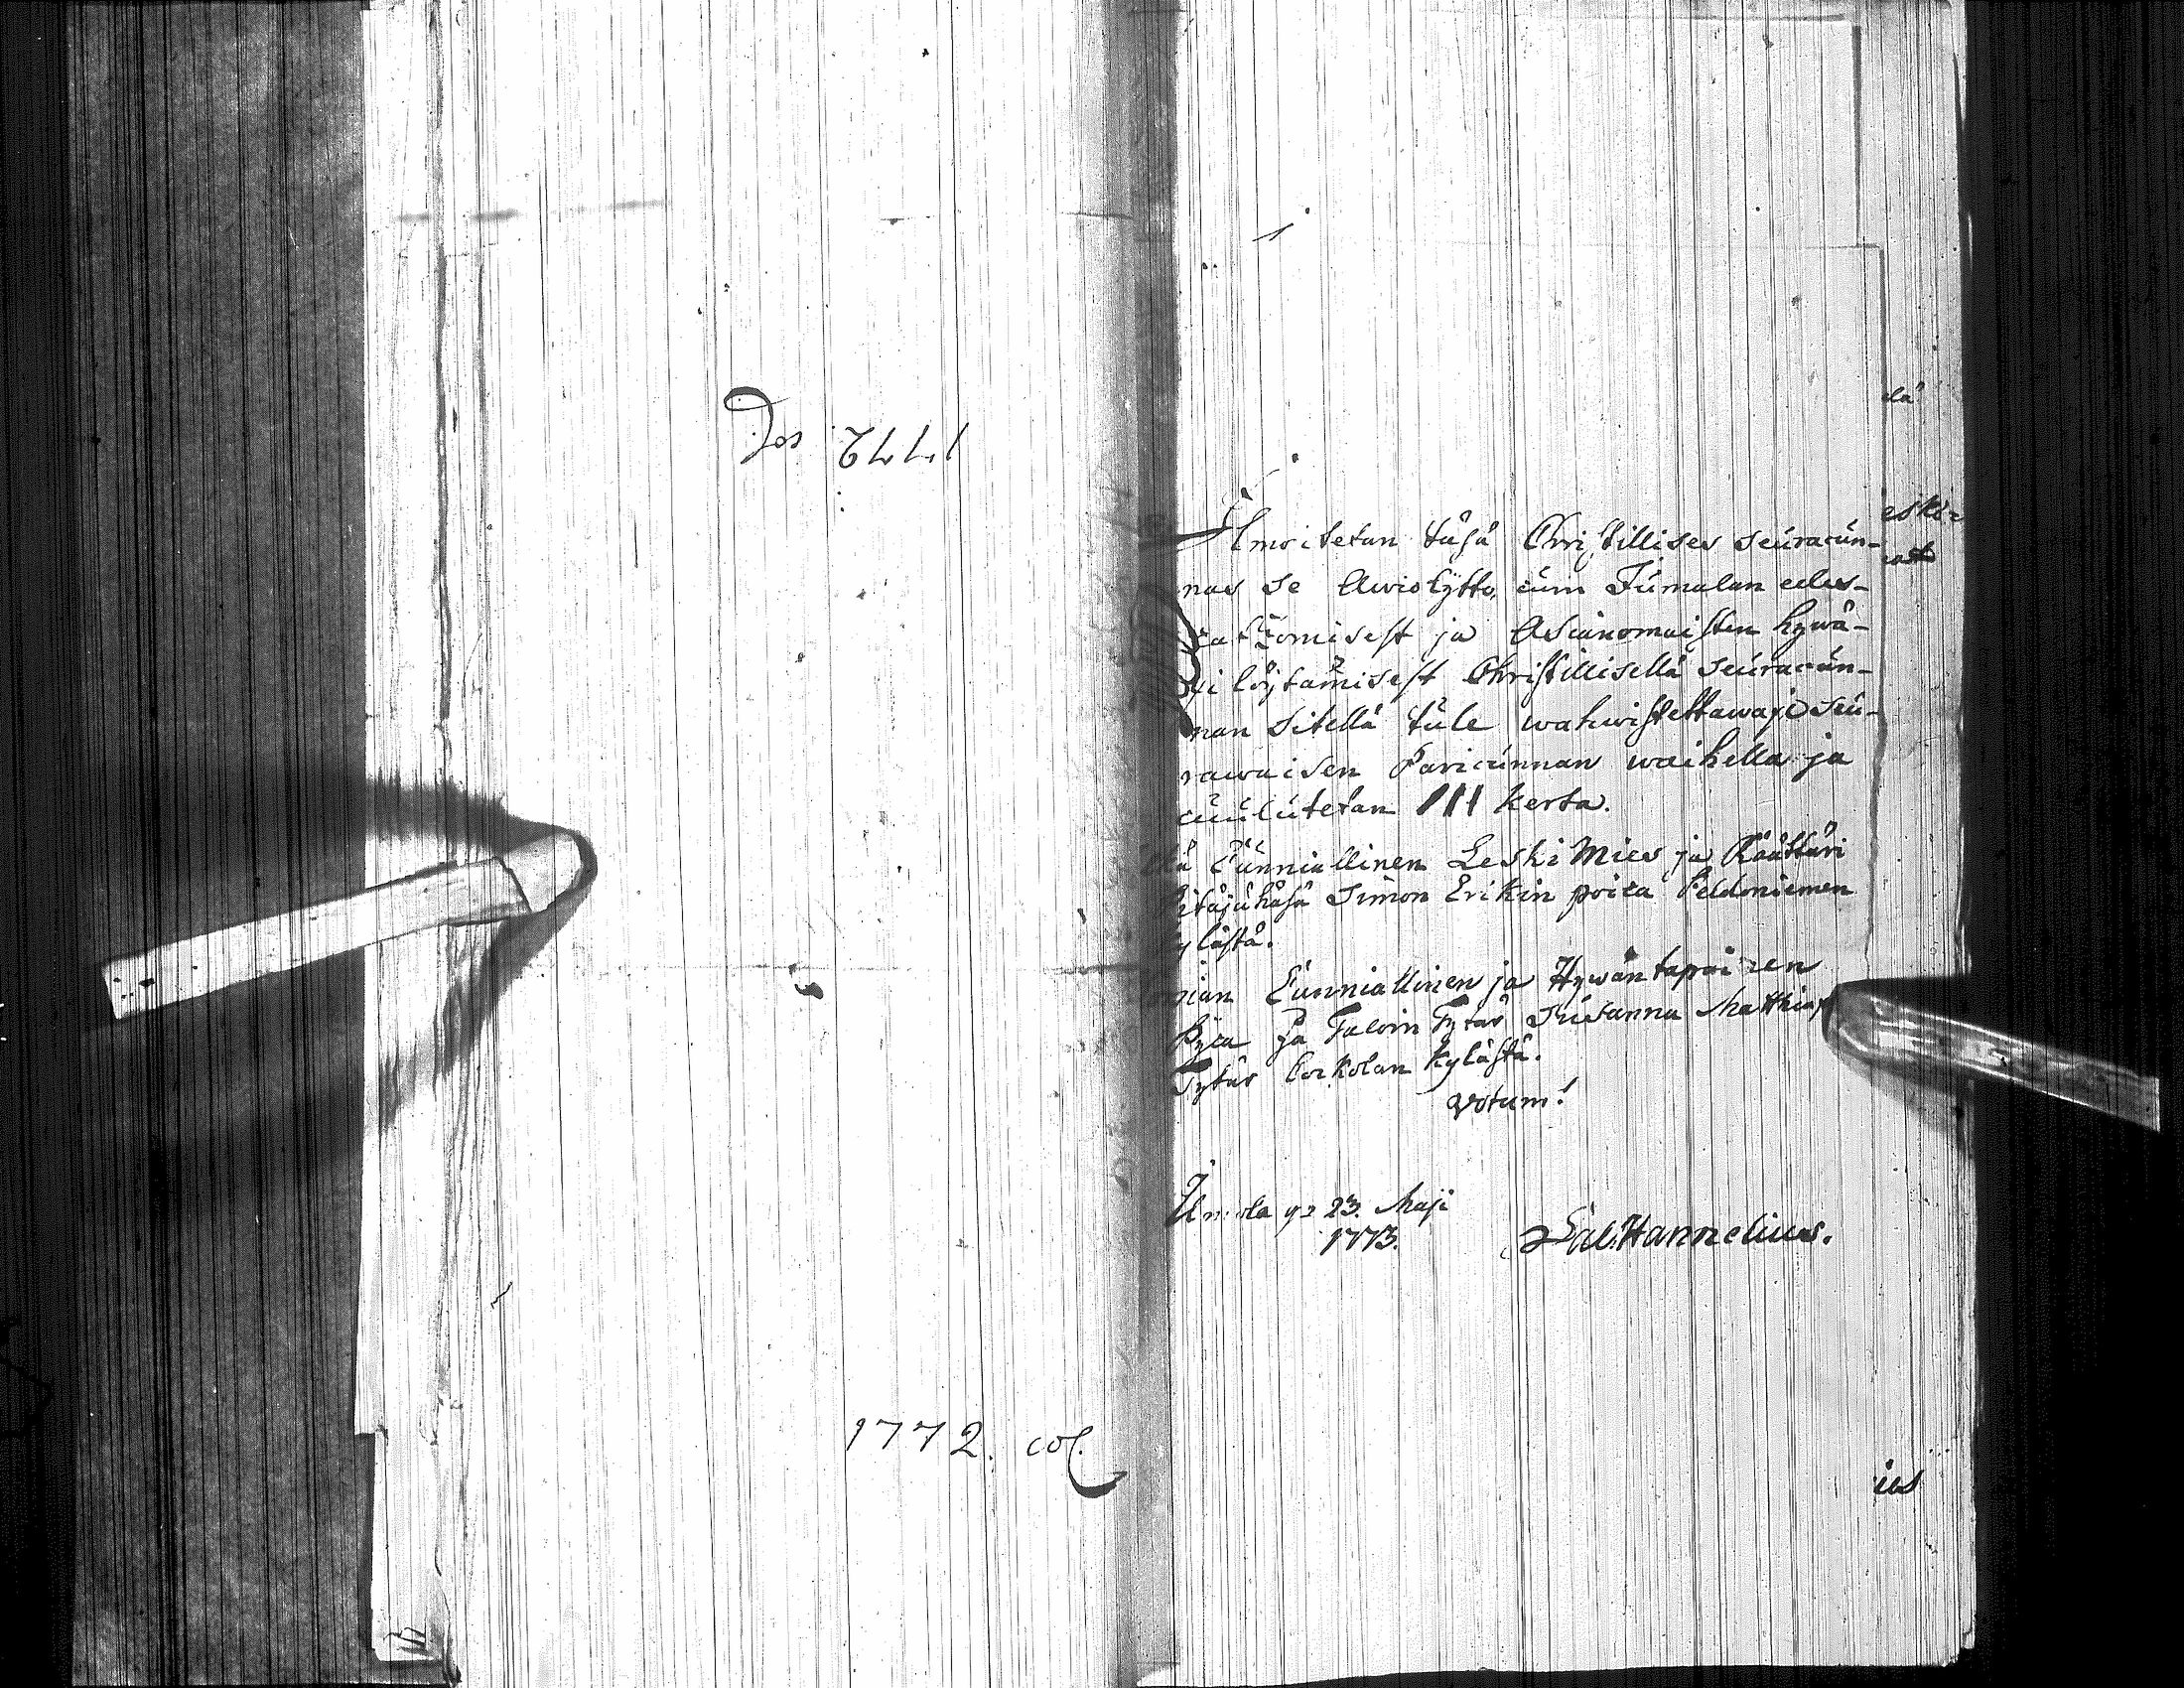 1772 col
1772. col.
Ilmoitetan täsä Christillises seuracun-
nas se Awiokytto, cuin Jumalan edes-
catzomisest ja Asianomaisten hywä-
xi löytämisest Christillisellä seuracun-
nan sitellä tule wahwistettawaxi seu-
rawaisen Paricunnan waihella ja
cuulutetan III kerta.
Cunniallinen Leski Mies ja Räättäri
Pitäjähäsä Simon Erikin poica Peldoniemen
kylästä.
Cunniallinen ja Hywäntapainen
Pijca ja Taloin Tytär Susanna Matthiax
Tytär Cockolan Kylästä.
Votum!
Urniala ÿd 23. Maji
1773.
Sal. Hannelius.
eski-
ius